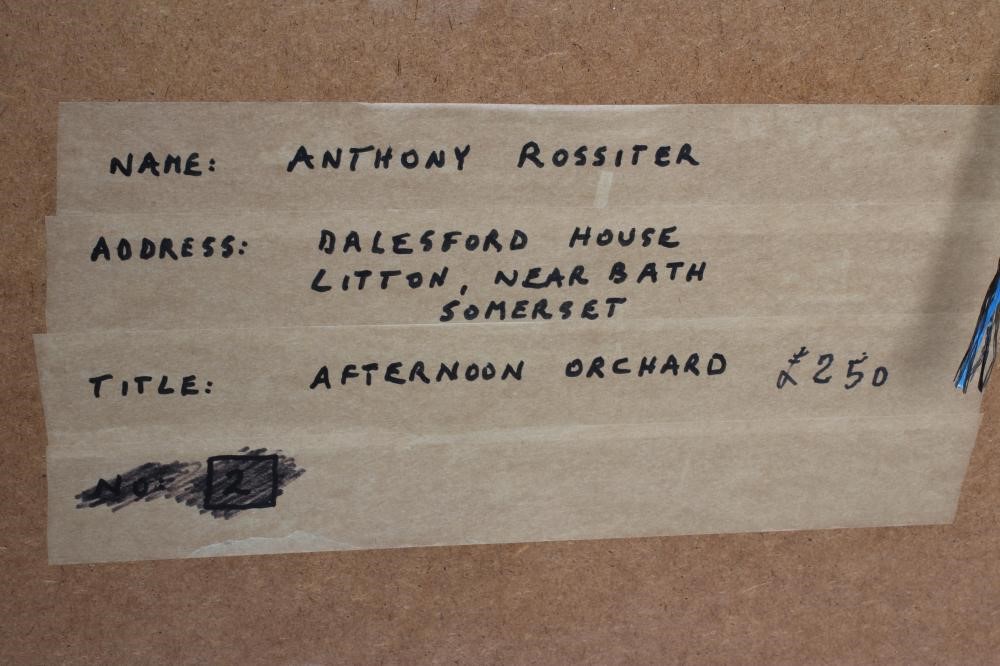 NAME: ANTHONY ROSSITER
ADDRESS: DALESFORD HOUSE
LITTON, NEAR BATH
SOMERSET
TITLE: AFTERNOON ORCHARD £250
NO: 2